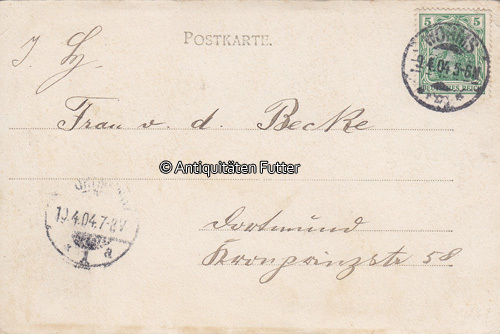 POSTKARTE.
5 5
DEUTSCHES REICH
9.4.04.5-6N.
Frau v. d. Becke
© Antiquitäten Futter
10.4.04.7-8V.
1 a
Dortmund
Kronprinzstr 58